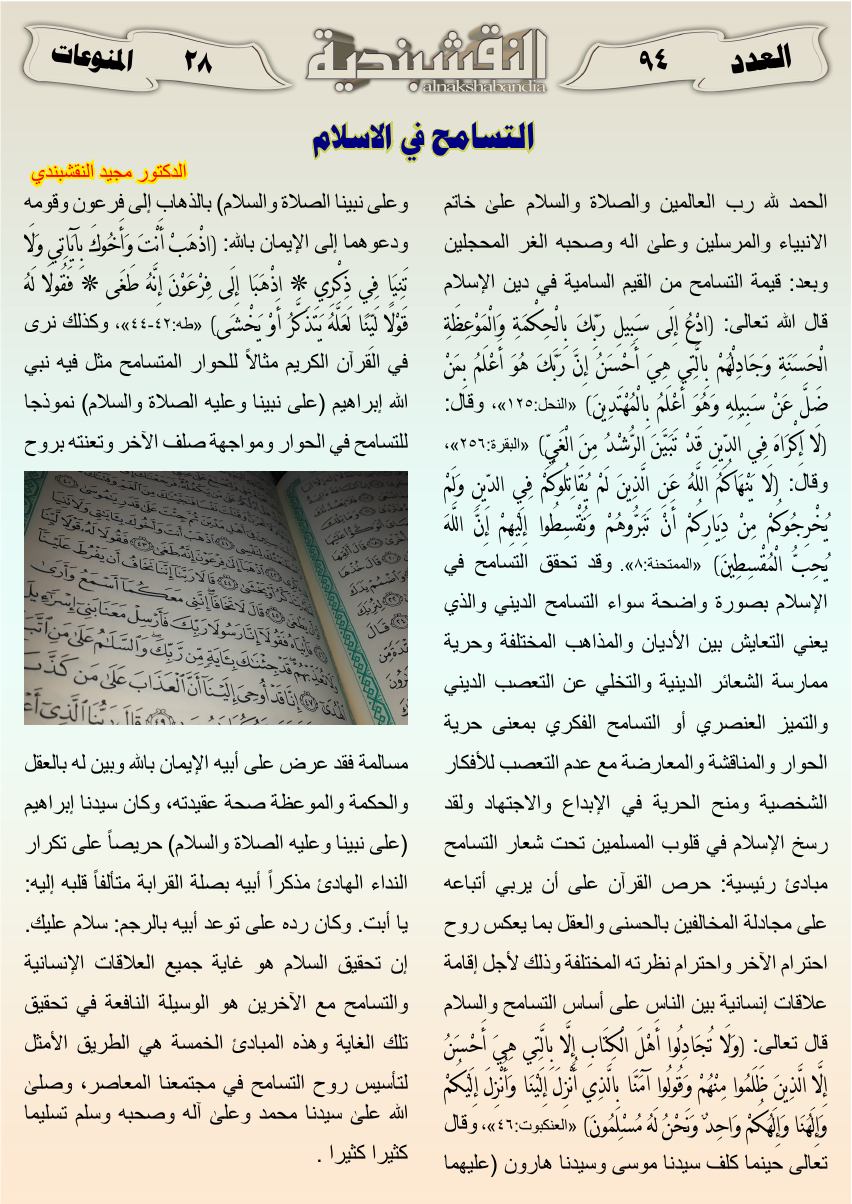 العدد
٩٤
النقشبندية
alnakshabandia
٢٨
المنوعات
التسامح في الاسلام
الدكتور مجيد النقشبندي
الحمد لله رب العالمين والصلاة والسلام على خاتم
الانبياء والمرسلين وعلى اله وصحبه الغر المحجلين
وبعد: قيمة التسامح من القيم السامية في دين الإسلام
قال الله تعالى: (ادْعُ إِلَى سَبِيلِ رَبِّكَ بِالْحِكْمَةِ وَالْمَوْعِظَةِ
الْحَسَنَةِ وَجَادِلْهُمْ بِالَّتِي هِيَ أَحْسَنُ إِنَّ رَبَّكَ هُوَ أَعْلَمُ بِمَنْ
ضَلَّ عَنْ سَبِيلِهِ وَهُوَ أَعْلَمُ بِالْمُهْتَدِينَ) «النحل:١٢٥»، وقال:
(لَا إِكْرَاهَ فِي الدِّينِ قَدْ تَبَيَّنَ الرُّشْدُ مِنَ الْغَيِّ) «البقرة:٢٥٦»،
وقال: (لَا يَنْهَاكُمُ اللَّهُ عَنِ الَّذِينَ لَمْ يُقَاتِلُوكُمْ فِي الدِّينِ وَلَمْ
يُخْرِجُوكُمْ مِنْ دِيَارِكُمْ أَنْ تَبَرُّوهُمْ وَتُقْسِطُوا إِلَيْهِمْ إِنَّ اللَّهَ
يُحِبُّ الْمُقْسِطِينَ) «الممتحنة:٨». وقد تحقق التسامح في
الإسلام بصورة واضحة سواء التسامح الديني والذي
يعني التعايش بين الأديان والمذاهب المختلفة وحرية
ممارسة الشعائر الدينية والتخلي عن التعصب الديني
والتميز العنصري أو التسامح الفكري بمعنى حرية
الحوار والمناقشة والمعارضة مع عدم التعصب للأفكار
الشخصية ومنح الحرية في الإبداع والاجتهاد ولقد
رسخ الإسلام في قلوب المسلمين تحت شعار التسامح
مبادئ رئيسية: حرص القرآن على أن يربي أتباعه
على مجادلة المخالفين بالحسنى والعقل بما يعكس روح
احترام الآخر واحترام نظرته المختلفة وذلك لأجل إقامة
علاقات إنسانية بين الناس على أساس التسامح والسلام
قال تعالى: (وَلَا تُجَادِلُوا أَهْلَ الْكِتَابِ إِلَّا بِالَّتِي هِيَ أَحْسَنُ
إِلَّا الَّذِينَ ظَلَمُوا مِنْهُمْ وَقُولُوا آمَنَّا بِالَّذِي أُنْزِلَ إِلَيْنَا وَأُنْزِلَ إِلَيْكُمْ
وَإِلَهُنَا وَإِلَهُكُمْ وَاحِدٌ وَنَحْنُ لَهُ مُسْلِمُونَ) «العنكبوت:٤٦»، وقال
تعالى حينما كلف سيدنا موسى وسيدنا هارون (عليهما
وعلى نبينا الصلاة والسلام) بالذهاب إلى فرعون وقومه
ودعوهما إلى الإيمان بالله: (اذْهَبْ أَنْتَ وَأَخُوكَ بِآيَاتِي وَلَا
تَنِيَا فِي ذِكْرِي * اذْهَبَا إِلَى فِرْعَوْنَ إِنَّهُ طَغَى * فَقُولَا لَهُ
قَوْلًا لَيِّنًا لَعَلَّهُ يَتَذَكَّرُ أَوْ يَخْشَى) «طه:٤٢-٤٤»، وكذلك نرى
في القرآن الكريم مثالاً للحوار المتسامح مثل فيه نبي
الله إبراهيم (على نبينا وعليه الصلاة والسلام) نموذجا
للتسامح في الحوار ومواجهة صلف الآخر وتعنته بروح
مسالمة فقد عرض على أبيه الإيمان بالله وبين له بالعقل
والحكمة والموعظة صحة عقيدته، وكان سيدنا إبراهيم
(على نبينا وعليه الصلاة والسلام) حريصاً على تكرار
النداء الهادئ مذكراً أبيه بصلة القرابة متألفاً قلبه إليه:
يا أبت. وكان رده على توعد أبيه بالرجم: سلام عليك.
إن تحقيق السلام هو غاية جميع العلاقات الإنسانية
والتسامح مع الآخرين هو الوسيلة النافعة في تحقيق
تلك الغاية وهذه المبادئ الخمسة هي الطريق الأمثل
لتأسيس روح التسامح في مجتمعنا المعاصر، وصلى
الله على سيدنا محمد وعلى آله وصحبه وسلم تسليما
كثيرا كثيرا .